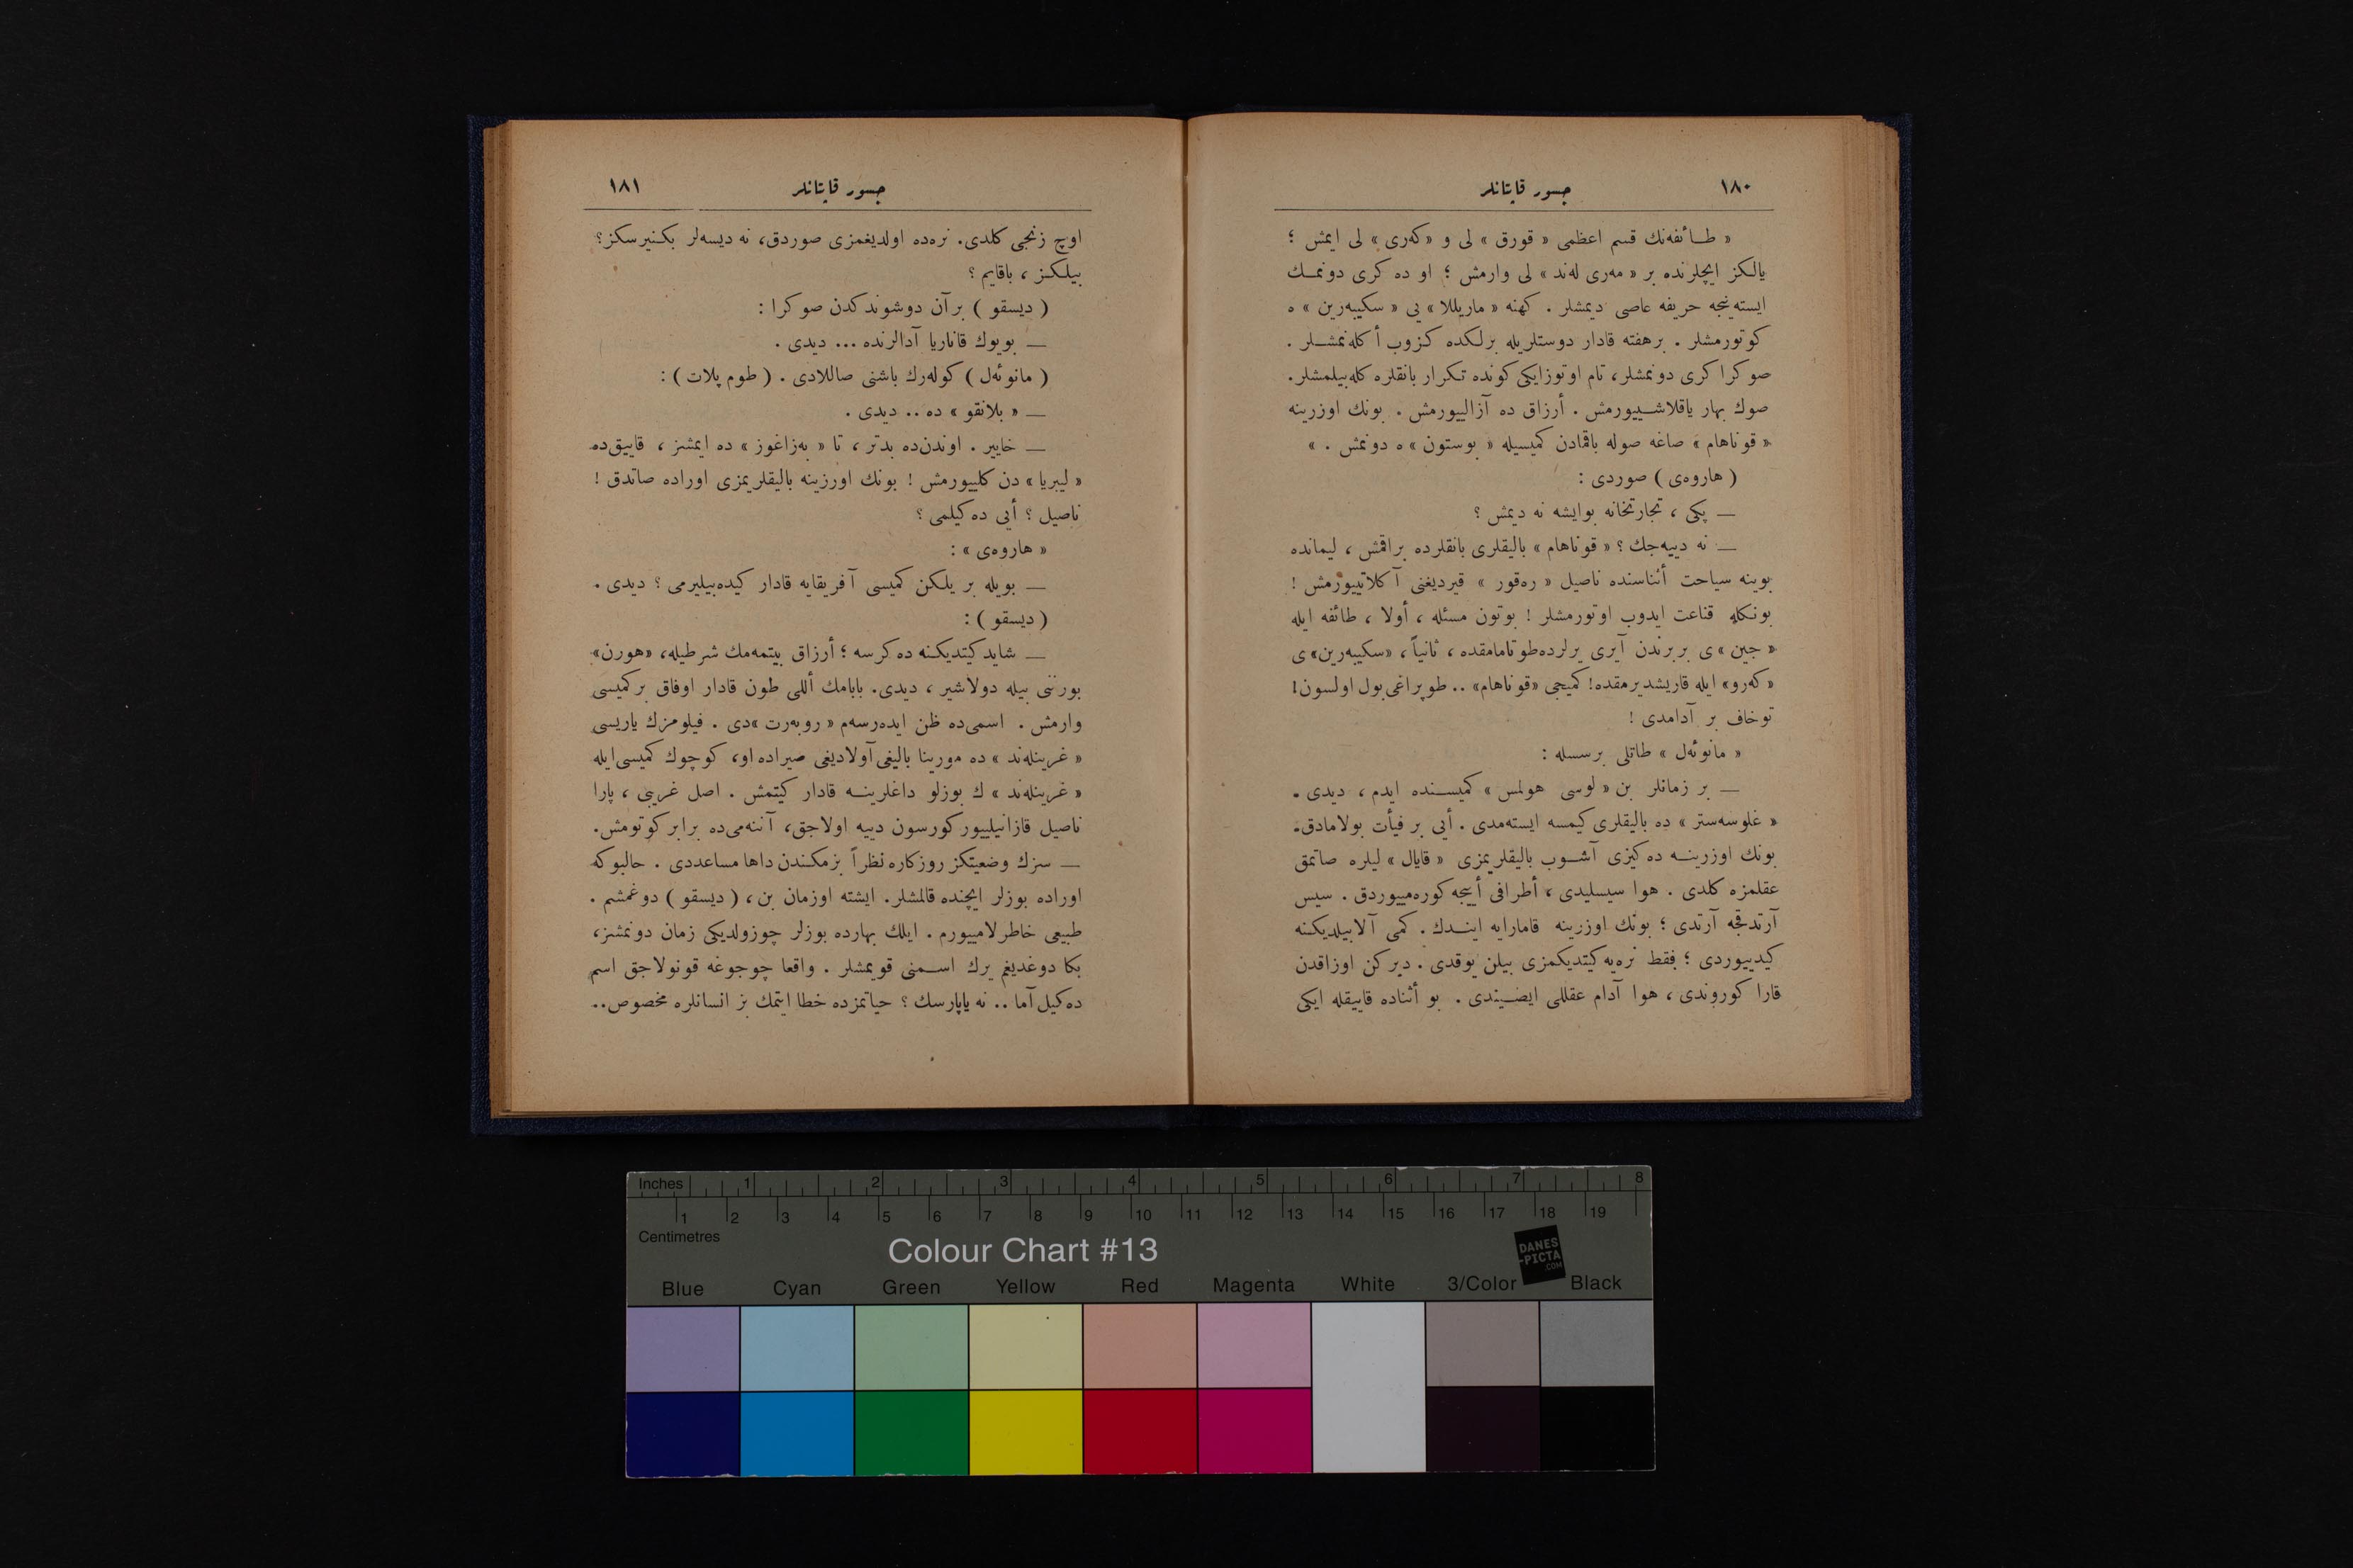 ١٨٠
جسور قاپتانلر
« طـائفه‌نك قسم اعظمى « قورق » لى و «كه‌رى » لى ايمش ؛
يالكز ايچلرنده بر « مه‌رى له‌ند » لى وارمش ؛ او ده كرى دونمـك
ايسته‌ينجه حريفه عاصى ديمشلر . كهنه « ماريللا » يى « سكيبه‌رين » ه
كوتورمشلر . برهفته قادار دوستلريله برلكده كزوب أكلنمشـلر .
صوكرا كرى دونمشلر، تام اوتوزايكى كونده تكرار بانقلره كله‌بيلمشلر.
صوك بهار ياقلاشـييورمش . أرزاق ده آزالييورمش . بونك اوزرينه
« قوناهام » صاغه صوله باقمادن كميسيله « بوستون » ه دونمش . »
( هاروه‌ى ) صوردى :
— پكى ، تجارتخانه بوايشه نه ديمش ؟
— نه دييه‌جك ؟ « قوناهام » باليقلرى بانقلرده براقمش ، ليمانده
بوينه سياحت أثناسنده ناصيل « ره‌قور » قيرديغنى آكلاتييورمش !
بونكله قناعت ايدوب اوتورمشلر ! بوتون مسئله ، أولا ، طائفه ايله
« جين » ى بربرندن آيرى يرلرده‌طوتامامقده ، ثانياً ، «سكيبه‌رين» ى
« كه‌رو» ايله قاريشديرمقده! كميجى «قوناهام» .. طوپراغى بول اولسون!
توخاف بر آدامدى !
« مانوئه‌ل » طاتلى برسسله :
— بر زمانلر بن « لوسى هولمس » كميسـنده ايدم ، ديدى .
« غلوسه‌ستر » ده باليقلرى كيمسه ايسته‌مدى . أيى بر فيأت بولامادق.
بونك اوزرينـه ده‌كيزى آشـوب باليقلريمزى « قاپال » ليلره صاتمق
عقلمزه كلدى . هوا سيسليدى ، أطرافى أييجه كوره‌مييوردق . سيس
آرتدقجه آرتدى ؛ بونك اوزرينه قامارايه اينـدك . كمى آلابيلديكنه
كيدييوردى ؛ فقط نره‌يه كيتديكمزى بيلن يوقدى . ديركن اوزاقدن
قارا كوروندى ، هوا آدام عقللى ايصـيندى . بو أثناده قاييقله ايكى
١٨١
جسور قاپتانلر
اوچ زنجى كلدى. نره‌ده اولديغمزى صوردق، نه ديسه‌لر بكنيرسكز؟
بيلكـز ، باقايم ؟
( ديسقو ) برآن دوشوندكدن صوكرا :
— بويوك قاناريا آدالرنده ... ديدى .
( مانوئه‌ل ) كوله‌رك باشنى صاللادى . ( طوم پلات ) :
— « بلانقو » ده .. ديدى .
— خايير . اوندن‌ده بدتر ، تا « به‌زاغوز » ده ايمشز ، قاييق‌ده
« ليبريا » دن كلييورمش ! بونك اورزينه باليقلريمزى اوراده صاتدق !
ناصيل ؟ أيى ده‌كيلمى ؟
« هاروه‌ى » :
— بويله بر يلكن كميسى آفريقايه قادار كيده‌بيليرمى ؟ ديدى .
( ديسقو ) :
— شايد كيتديكنه ده‌كرسه ؛ أرزاق بيتمه‌مك شرطيله، «هورن»
بورننى بيله دولاشير ، ديدى. بابامك أللى طون قادار اوفاق بركميسى
وارمش . اسمى‌ده ظن ايده‌رسه‌م « روبه‌رت »دى . فيلومزك ياريسى
« غرينله‌ند » ده مورينا باليغى آولاديغى صيراده او، كوچوك كميسى‌ايله
« غرينله‌ند » ك بوزلو داغلرينـه قادار كيتمش . اصل غريبى ، پارا
ناصيل قازانيلييور كورسون دييه اولاجق، آننه‌مى‌ده برابر كوتومش.
— سزك وضعيتكز روزكاره نظراً بزمكندن داها مساعددى . حالبوكه
اوراده بوزلر ايچنده قالمشلر. ايشته اوزمان بن، ( ديسقو ) دوغمشم .
طبيعى خاطرلامييورم . ايلك بهارده بوزلر چوزولديكى زمان دونمشز،
بكا دوغديغم يرك اسـمنى قويمشلر . واقعا چوجوغه قونولاجق اسم
ده‌كيل آما .. نه ياپارسك ؟ حياتمزده خطا ايتمك بز انسانلره مخصوص..
Inches 1 2 3 4 5 6 7 8
1 2 3 4 5 6 7 8 9 10 11 12 13 14 15 16 17 18 19
Centimetres
Colour Chart #13
DANES
-PICTA
.COM
Blue Cyan Green Yellow Red Magenta White 3/Color Black